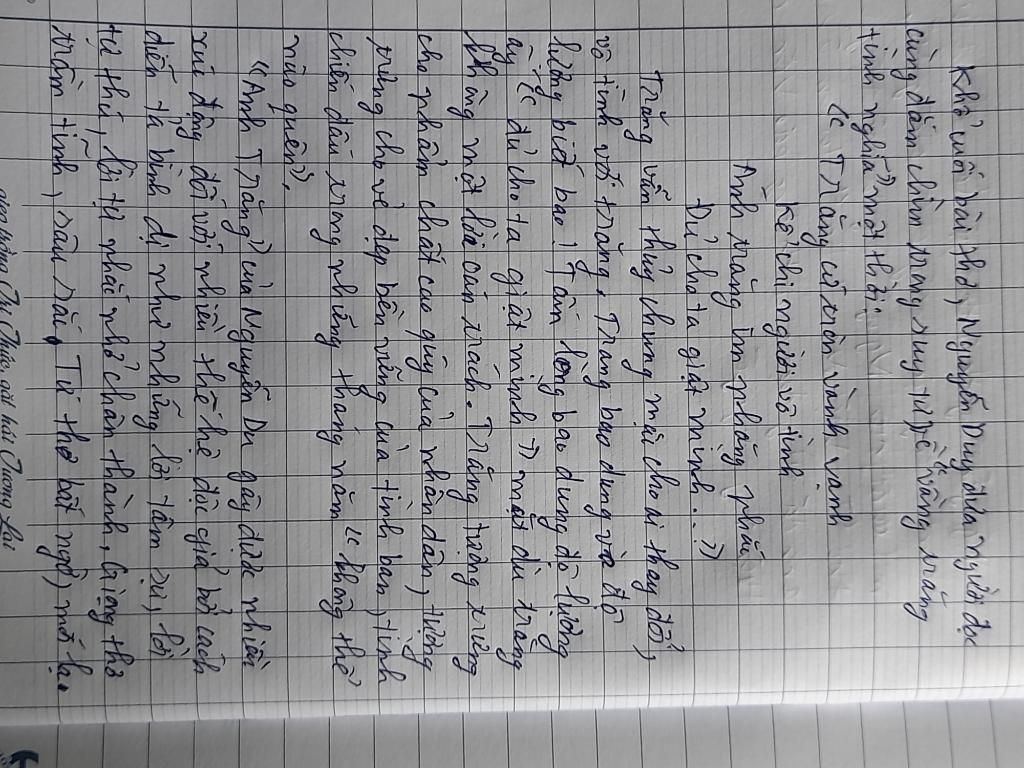 Khổ cuối bài thơ, Nguyễn Duy đưa người đọc
cùng đắm chìm trong suy tư về "vầng trăng
tình nghĩa" một thời:
"Trăng cứ tròn vành vạnh
Kể chi người vô tình
Ánh trăng im phăng phắc
Đủ cho ta giật mình..."
Trăng vẫn thủy chung mặc cho ai thay đổi,
vô tình với trăng. Trăng bao dung và độ
lượng biết bao! Tấm lòng bao dung độ lượng
ấy "đủ cho ta giật mình" mặt dù trăng
không một lời oán trách. Trăng tượng trưng
cho phẩm chất cao quý của nhân dân, tượng
trưng cho vẻ đẹp bền vững của tình bạn, tình
chiến đấu trong những tháng năm "không thể
nào quên".
"Ánh Trăng" của Nguyễn Du gây được nhiều
xúc động đối với nhiều thế hệ độc giả bởi cách
diễn tả bình dị như những lời tâm sự, lời
tự thú, lời tự nhắc nhở chân thành. Giọng thơ
trầm tĩnh, sâu lắng. Tứ thơ bất ngờ, mới lạ.